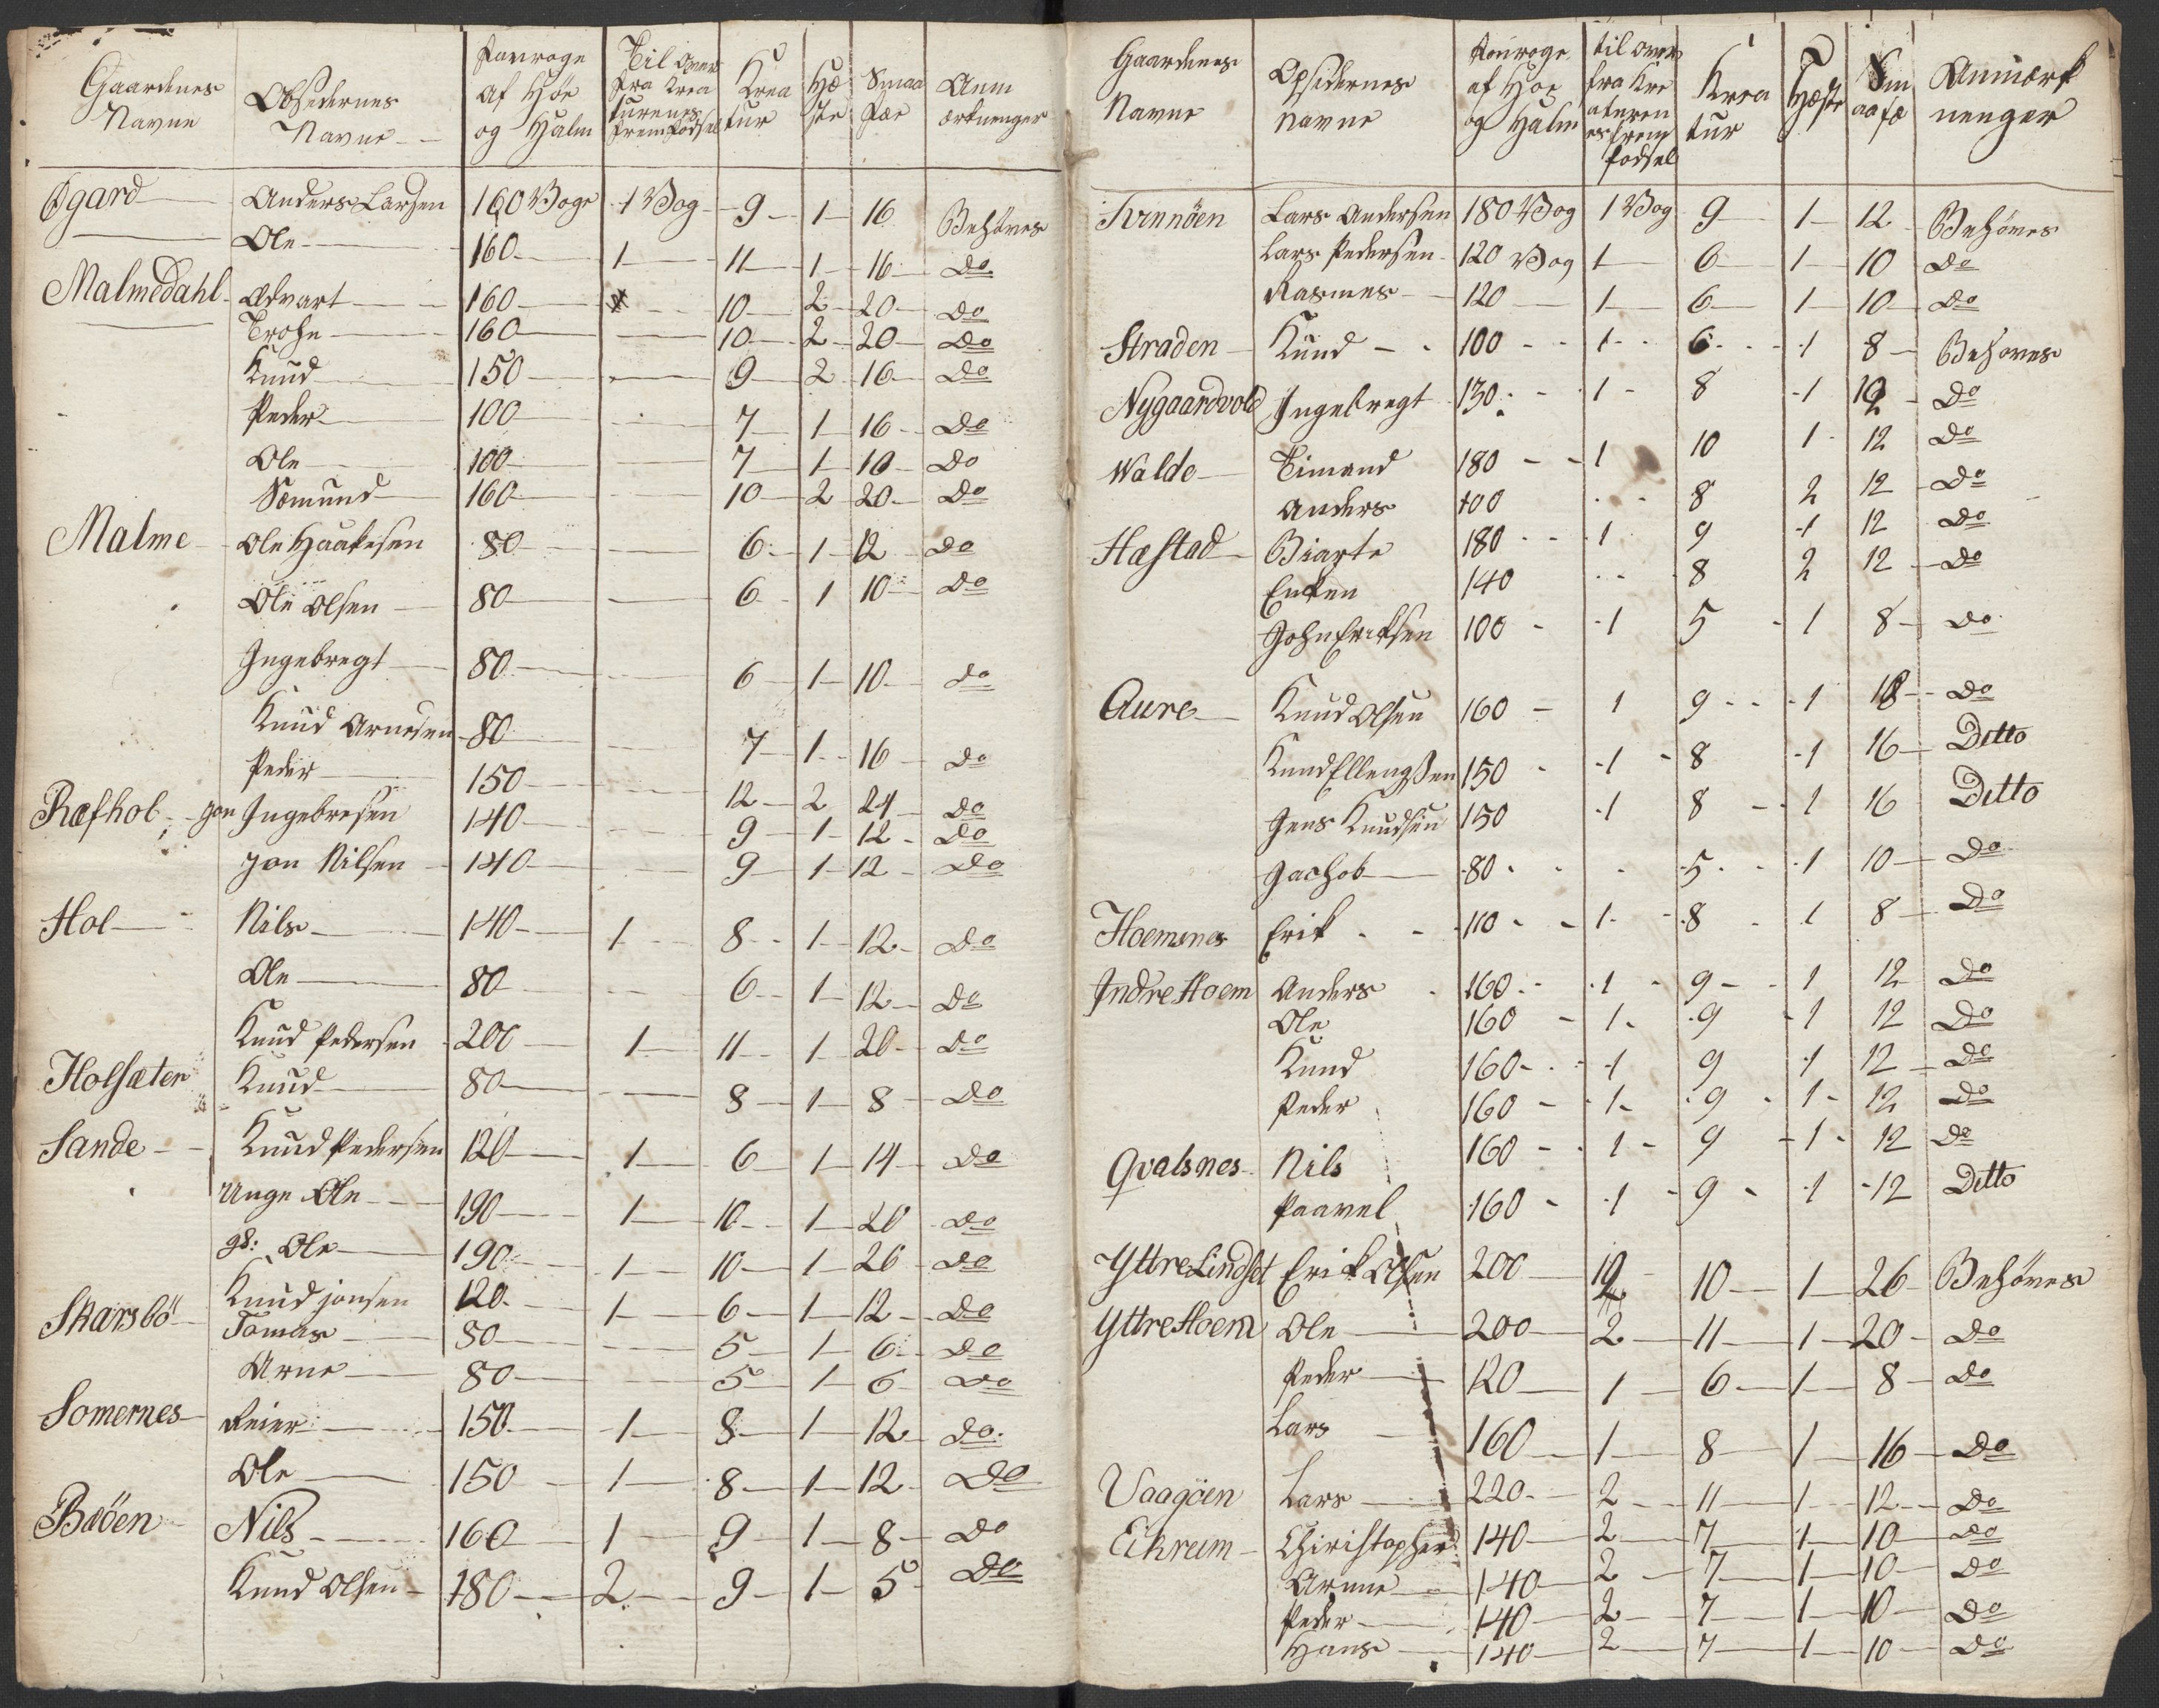 Gaardenes Navne | Obsedernes Navne | Forraage af Höe og Halm | Til overs fra Kreaturenes fremfødsel | Kreatur | Hæste | Smaa Fæe | Anmærkninger
Øgard | Anders Larsen | 160 Voge | 1 Vog | 9 | 1 | 16 | Behöves
Ole | 160 | 1 | 11 | 1 | 16 | Do
Malmedahl | Edvart | 160 | | 10 | 2 | 20 | Do
Trohn | 160 | | 10 | 2 | 20 | Do
Knud | 150 | | 9 | 2 | 16 | Do
Peder | 100 | | 7 | 1 | 16 | Do
Ole | 100 | | 7 | 1 | 10 | Do
Somund | 160 | | 10 | 2 | 20 | Do
Malme | Ole Haakesen | 80 | | 6 | 1 | 12 | Do
Ole Olsen | 80 | | 6 | 1 | 10 | Do
Ingebregt | 80 | | 6 | 1 | 10 | Do
Knud Arnesen | 80 | | 7 | 1 | 16 | Do
Peder | 150 | | 12 | 2 | 24 | Do
Ræfhol | Jon Ingebresen | 140 | | 9 | 1 | 12 | Do
Jon Nilsen | 140 | | 9 | 1 | 12 | Do
Hol | Nils | 140 | 1 | 8 | 1 | 12 | Do
Ole | 80 | | 6 | 1 | 12 | Do
Knud Pedersen | 200 | 1 | 11 | 1 | 20 | Do
Holsæter | Knud | 80 | | 8 | 1 | 8 | Do
Sande | Knud Pedersen | 120 | 1 | 6 | 1 | 14 | Do
Unge Ole | 190 | 1 | 10 | 1 | 20 | Do
gl: Ole | 190 | 1 | 10 | 1 | 26 | Do
Skarsbö | Knud jonsen | 120 | 1 | 6 | 1 | 12 | Do
Tomas | 80 | | 5 | 1 | 6 | Do
Arne | 80 | | 5 | 1 | 6 | Do
Somernes | Reier | 150 | 1 | 8 | 1 | 12 | Do
Ole | 150 | 1 | 8 | 1 | 12 | Do
Bæöen | Nils | 160 | 1 | 9 | 1 | 8 | Do
Knud Olsen | 180 | 2 | 9 | 1 | 5 | Do
Gaardenes Navne | Opsidernes Navne | Forraage af Hoe og Halm | til overs fra Kreaturenes fremfodsel | Kreatur | Hæste | Smaafæ | Anmærknenger
Tvinnöen | Lars Andersen | 180 Vog | 1 Vog | 9 | 1 | 12 | Behöves
Lars Pedersen | 120 Vog | 1 | 6 | 1 | 10 | Do
Rasmus | 120 | 1 | 6 | 1 | 10 | Do
Straden | Knud | 100 | 1 | 6 | 1 | 8 | Behoves
Nygaardvold | Ingebregt | 130 | 1 | 8 | 1 | 12 | Do
Walde | Eimand | 180 | 1 | 10 | 1 | 12 | Do
Anders | 100 | | 8 | 2 | 12 | Do
Hæstad | Biarte | 180 | 1 | 9 | 1 | 12 | Do
Enken | 140 | | 8 | 2 | 12 | Do
John Eriksen | 100 | 1 | 5 | 1 | 8 | Do
Aure | Knud Olsen | 160 | 1 | 9 | 1 | 18 | Do
Knud Ellengsen | 150 | 1 | 8 | 1 | 16 | Ditto
Jens Knudsen | 150 | 1 | 8 | 1 | 16 | Ditto
Jachob | 80 | | 5 | 1 | 10 | Do
Hoemsnes | Erik | 110 | 1 | 8 | 1 | 8 | Do
Indre Hoem | Anders | 160 | 1 | 9 | 1 | 12 | Do
Ole | 160 | 1 | 9 | 1 | 12 | Do
Knud | 160 | 1 | 9 | 1 | 12 | Do
Peder | 160 | 1 | 9 | 1 | 12 | Do
Qvalsnes | Nils | 160 | 1 | 9 | 1 | 12 | Do
Paavel | 160 | 1 | 9 | 1 | 12 | Ditto
Yttre Lindset | Erik Olsen | 200 | | 10 | 1 | 26 | Behöves
Yttre Hoem | Ole | 200 | 2 | 11 | 1 | 20 | Do
Peder | 120 | 1 | 6 | 1 | 8 | Do
Lars | 160 | 1 | 8 | 1 | 16 | Do
Vaagöen | Lars | 220 | 2 | 11 | 1 | 12 | Do
Eikrem | Chiristopher | 140 | 2 | 7 | 1 | 10 | Do
Arnne | 140 | 2 | 7 | 1 | 10 | Do
Peder | 140 | 2 | 7 | 1 | 10 | Do
Hans | 140 | 2 | 7 | 1 | 10 | Do